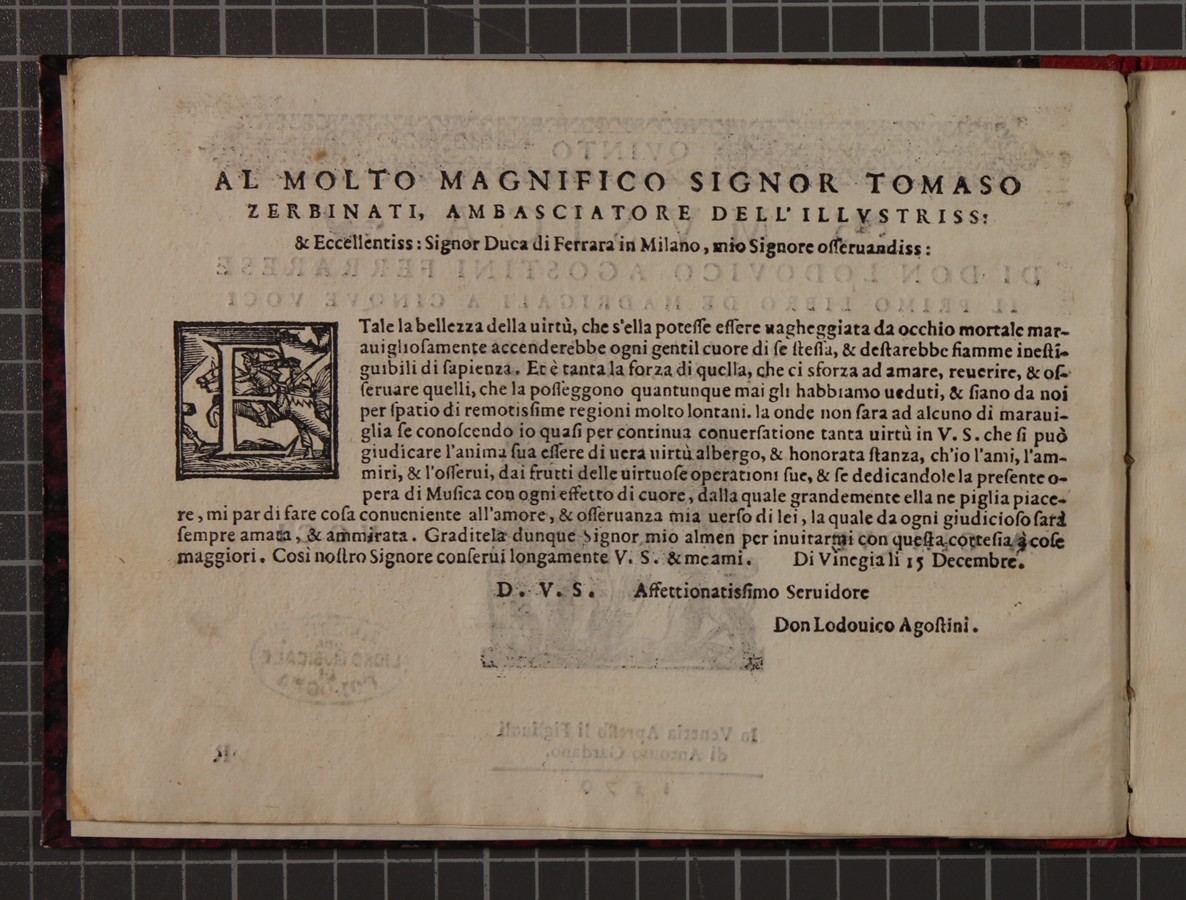 AL MOLTO MAGNIFICO SIGNOR TOMASO
ZERBINATI, AMBASCIATORE DELL'ILLVSTRISS:
& Eccellentiss: Signor Duca di Ferrara in Milano, mio Signore oſſeruandiss:
E Tale la bellezza della uirtù, che s'ella poteſſe eſſere uagheggiata da occhio mortale mar-
auiglioſamente accenderebbe ogni gentil cuore di ſe ſteſſa, & deſtarebbe fiamme ineſti-
guibili di ſapienza. Et è tanta la forza di quella, che ci sforza ad amare, reuerire, & oſ-
ſeruare quelli, che la poſſeggono quantunque mai gli habbiamo ueduti, & ſiano da noi
per ſpatio di remotisſime regioni molto lontani. la onde non ſara ad alcuno di maraui-
glia ſe conoſcendo io quaſi per continua conuerſatione tanta uirtù in V. S. che ſi può
giudicare l'anima ſua eſſere di uera uirtù albergo, & honorata ſtanza, ch'io l'ami, l'am-
miri, & l'oſſerui, dai frutti delle uirtuoſe operationi ſue, & ſe dedicandole la preſente o-
pera di Muſica con ogni effetto di cuore, dalla quale grandemente ella ne piglia piace-
re, mi par di fare coſa conueniente all'amore, & oſſeruanza mia uerſo di lei, la quale da ogni giudicioſo ſarà
ſempre amata, & ammirata. Graditela dunque Signor mio almen per inuitarmi con queſta corteſia à coſe
maggiori. Cosi noſtro Signore conſerui longamente V. S. & me ami. Di Vinegia li 15 Decembre.
D. V. S. Affettionatisſimo Seruidore
Don Lodouico Agoſtini.